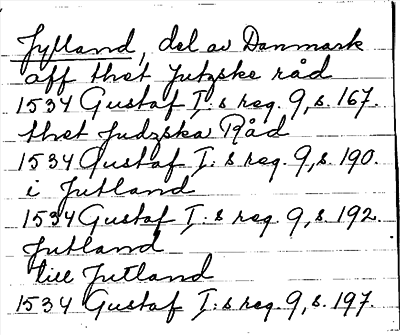 Jylland, del av Danmark
aff thet Jutzske råd
1534 Gustaf I:s reg. 9, s. 167.
thet Judzska Råd
1534 Gustaf I:s reg. 9, s. 190.
i Jutland
1534 Gustaf I:s reg. 9, s. 192.
Jutland
till Jutland
1534 Gustaf I:s reg. 9, s. 197.